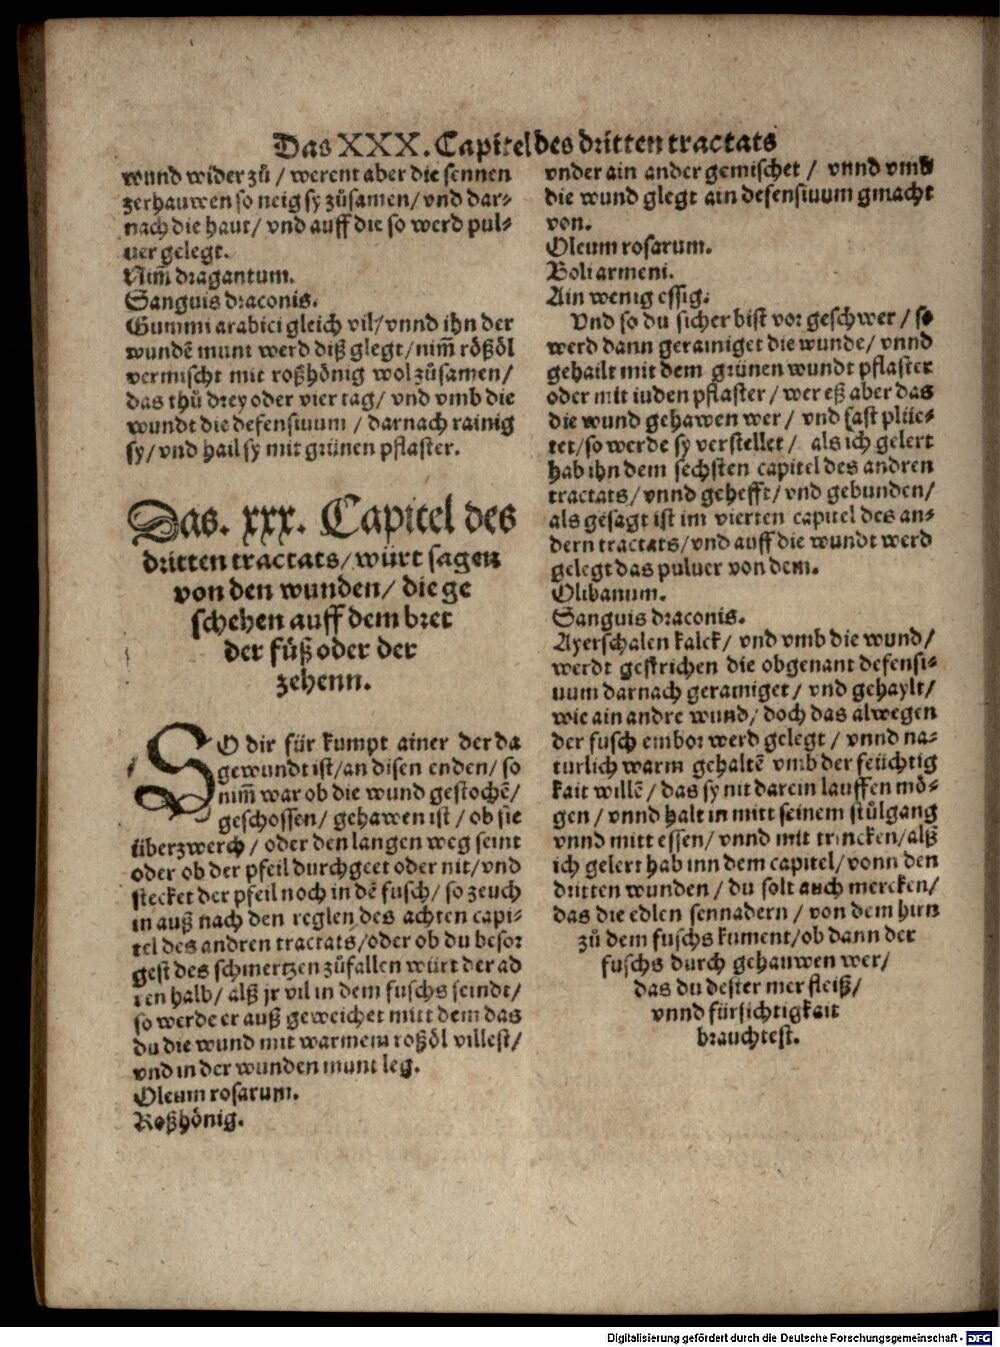 Das XXX. Capitel des dritten tractats
wund wider zů / werent aber die sennen
zerhauwen so neig sy zůsamen / vnd dar⸗
nach die haut / vnd auff die so werd pul⸗
uer gelegt.
Nim̄ dragantum.
Sanguis draconis.
Gummi arabici gleich vil / vnnd ihn der
wundē munt werd diß glegt / nim̄ rößöl
vermischt mit roßhönig wol zůsamen /
das thů drey oder vier tag / vnd vmb die
wundt die defensiuum / darnach rainig
sy / vnd hail sy mit grünen pflaster.
Das. xxx. Capitel des
dritten tractats / würt sagen
von den wunden / die ge
schehen auff dem bret
der fůß oder der
zehenn.
SO dir für kumpt ainer der da
gewundt ist / an disen enden / so
nim̄ war ob die wund gestochē /
geschossen / gehawen ist / ob sie
überzwerch / oder den langen weg seint
oder ob der pfeil durchgeet oder nit / vnd
stecket der pfeil noch in dē fusch / so zeuch
in auß nach den reglen des achten capi⸗
tel des andren tractats / oder ob du besor
gest des schmertzen zůfallen würt der ad
ren halb / alß jr vil in dem fuschs seindt /
so werde er auß geweichet mitt dem das
du die wund mit warmem roßöl villest /
vnd in der wunden munt leg.
Oleum rosarum.
Roßhönig.
vnder ain ander gemischet / vnnd vmb
die wund glegt ain defensiuum gmacht
von.
Oleum rosarum.
Boli armeni.
Ain wenig essig.
Vnd so du sicher bist vor geschwer / so
werd dann gerainiget die wunde / vnnd
gehailt mit dem grünen wundt pflaster
oder mit iuden pflaster / wer eß aber das
die wund gehawen wer / vnd fast plůe⸗
tet / so werde sy verstellet / als ich gelert
hab ihn dem sechsten capitel des andren
tractats / vnnd gehefft / vnd gebunden /
als gesagt ist im vierten capitel des an⸗
dern tractats / vnd auff die wundt werd
gelegt das puluer von dem.
Olibanum.
Sanguis draconis.
Ayerschalen kalck / vnd vmb die wund /
werdt gestrichen die obgenant defensi⸗
uum darnach gerainiget / vnd gehaylt /
wie ain andre wund / doch das alwegen
der fusch embor werd gelegt / vnnd na⸗
turlich warm gehaltē vmb der feüchtig
kait willē / das sy nit darein lauffen mö⸗
gen / vnnd halt in mitt seinem stůlgang
vnnd mitt essen / vnnd mit trincken / alß
ich gelert hab inn dem capitel / vonn den
dritten wunden / du solt auch mercken /
das die edlen sennadern / von dem hirn
zů dem fuschs kument / ob dann der
fuschs durch gehauwen wer /
das du dester mer fleiß /
vnnd fürsichtigkait
brauchtest.
Digitalisierung gefördert durch die Deutsche Forschungsgemeinschaft - DFG